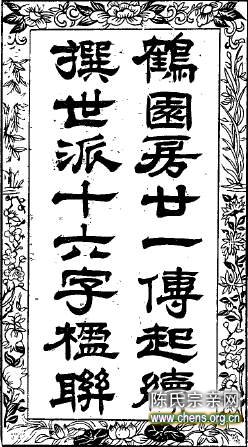 鶴園房廿一傳起續
撰世派十六字楹聯
陈氏宗亲网
www.chens.org.cn